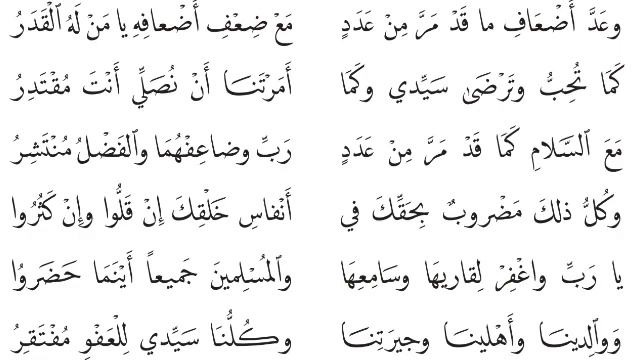 وعَدَّ أَضْعَافِ ما قَدْ مَرَّ مِنْ عَدَدٍ مَعْ ضِعْفِ أَضْعافِهِ يا مَنْ لَهُ ٱلْقَدَرُ
كَمَا تُحِبُّ وتَرْضَىٰ سَيِّدي وكَمَا أَمَرْتَنـا أَنْ نُصَلِّي أَنْتَ مُقْتَدِرُ
مَعَ ٱلسَّلامِ كَمَا قَدْ مَرَّ مِنْ عَدَدٍ رَبِّ وضاعِفْهُمَا وٱلْفَضْلُ مُنْتَشِرُ
وكُلُّ ذلكَ مَضْروبٌ بِحَقِّكَ في أَنْفاسِ خَلْقِكَ إِنْ قَلُّوا وإِنْ كَثُرُوا
يا رَبِّ واغْفِرْ لِقارِيهَا وسَامِعِهَا وٱلمُسْلِمينَ جَميعاً أَيْنَمَا حَضَرُوا
وَوَالِدِينـا وأَهْلِينـا وجِيرَتِنـا وكُلُّنَا سَيِّدي لِلْعَفْوِ مُفْتَقِرُ